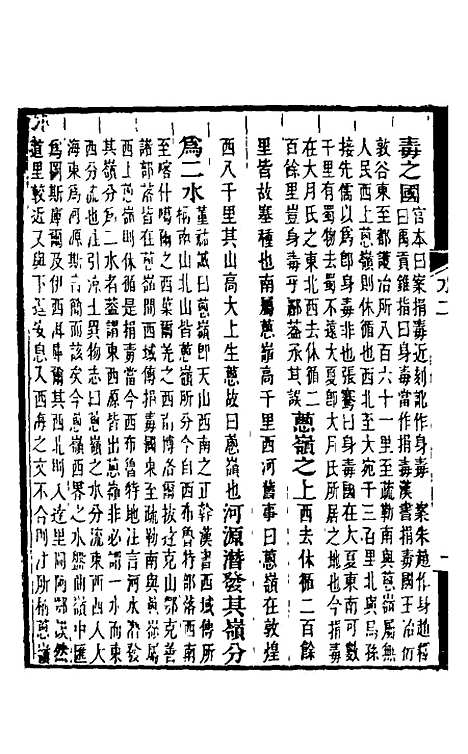 毒之國官本曰案捐毒近刻訛作身毒 案朱趙作身趙釋
曰禹貢錐指曰身毒當作捐毒漢書捐毒國王治衍
敦谷東至都護治所八百六十一里至疏勒南與蔥嶺屬無
人民西上蔥嶺則休循也西北至大宛千三百里北與烏孫
接先儒以爲卽身毒非也張騫曰身毒國在大夏東南可數
千里有蜀物去蜀不遠大夏大月氏所居之地也今捐毒
在大月氏之東北西去休循二
百餘里豈身毒乎酈葢承其誤蔥嶺之上西去休循二百餘
里皆故塞種也南屬蔥嶺高千里西河舊事曰蔥嶺在敦煌
西八千里其山高大上生蔥故曰蔥嶺也河源潛發其嶺分
爲二水董祐誠曰蔥嶺卽天山西南之正幹漢書西域傳所
稱南山北山皆蔥嶺所分今自西布魯特部落西南
至喀什噶爾之西葉爾羌之西曰博洛爾達克山鄂克善
諸部落皆蔥嶺間西域傳捐毒國東至疏勒南與蔥嶺屬
西上蔥嶺則休循是捐毒當今西布魯特地注言河水
其嶺分爲二水名葢謂東西源皆出蔥嶺非必謂一水而東
西分流也注引涼土異物志曰蔥嶺之水分流東西西入大
海東爲河源斯言簡而該矣西界之水嶺中匯
爲圖斯庫爾及伊西洱庫爾其西北則入達里岡阿鄂謨然
道里較近又與下逕安息入西海之文不合則古所稱蔥嶺
水二